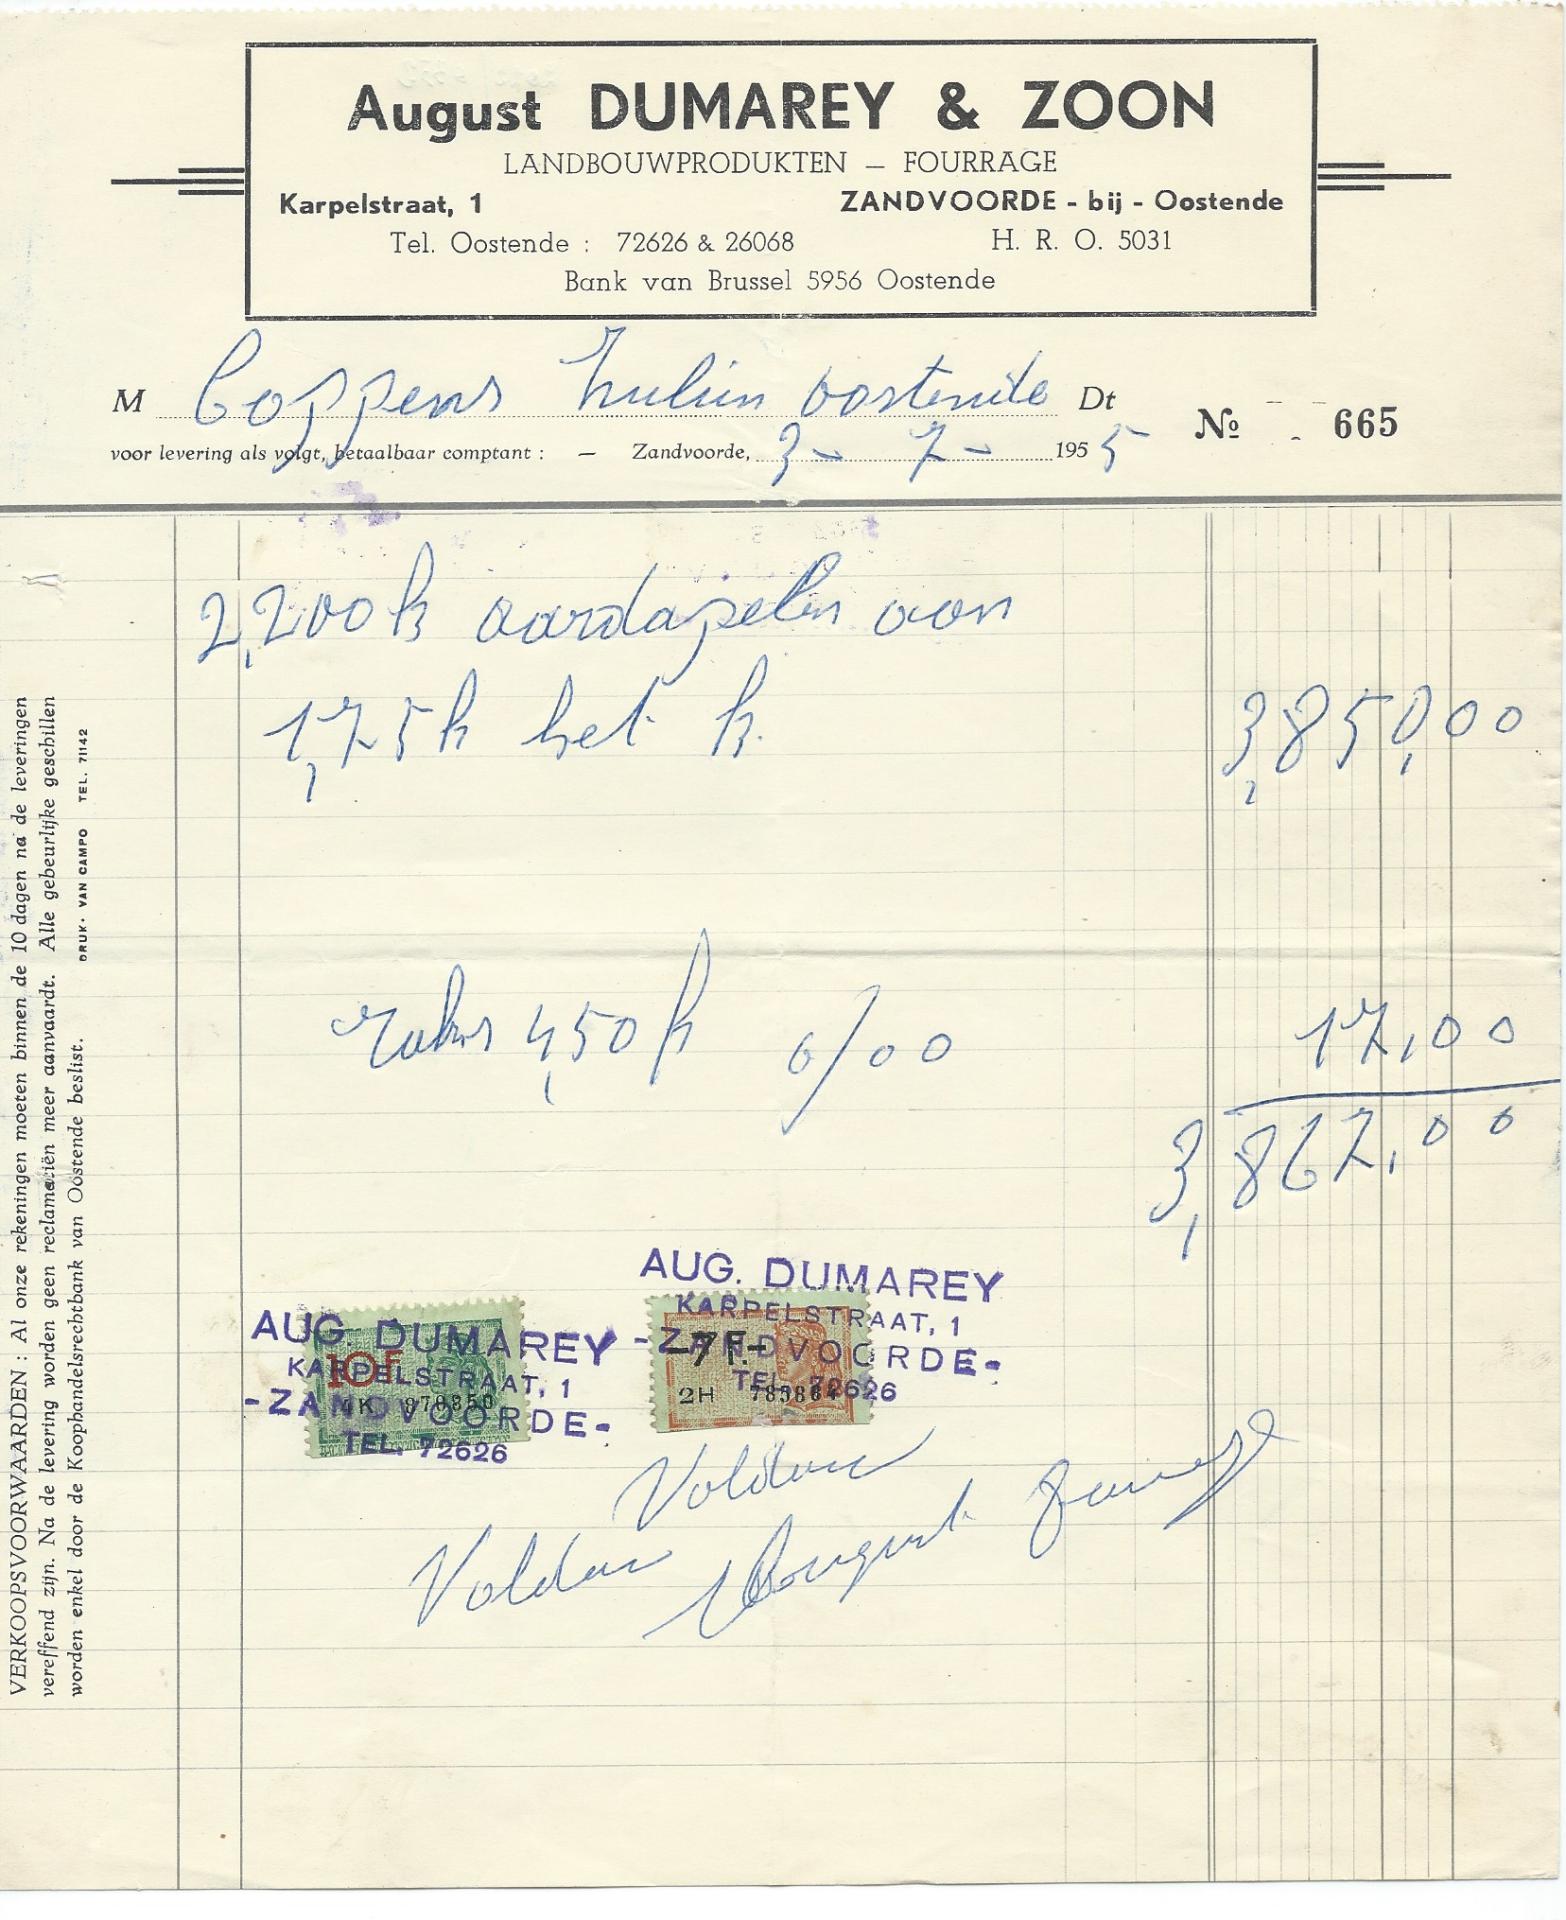 August DUMAREY & ZOON
LANDBOUWPRODUKTEN — FOURRAGE
Karpelstraat, 1 ZANDVOORDE - bij - Oostende
Tel. Oostende : 72626 & 26068 H. R. O. 5031
Bank van Brussel 5956 Oostende
M Coppens oostende Dt
№ 665
voor levering als volgt, betaalbaar comptant : — Zandvoorde, 3 - 7 - 1955
2,200 k aardapelen aan
1,75 k het k. 3,850,00
4,50 0/00 17,00
3,867,00
AUG. DUMAREY
KARPELSTRAAT, 1
-ZANDVOORDE-
TEL. 72626
10F
AUG. DUMAREY
KARPELSTRAAT, 1
-ZANDVOORDE-
TEL. 72626
7F.-
2H
Voldaan
Voldaan August
VERKOOPSVOORWAARDEN : Al onze rekeningen moeten binnen de 10 dagen na de leveringen
vereffend zijn. Na de levering worden geen reclamatiën meer aanvaardt. Alle gebeurlijke geschillen
worden enkel door de Koophandelsrechtbank van Oostende beslist.
DRUK. VAN CAMPO TEL. 71142